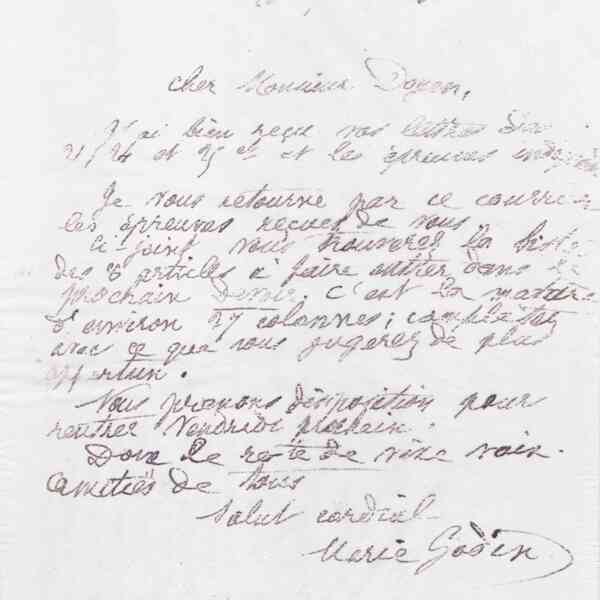 Cher Monsieur Doyen,
J'ai bien reçu vos lettres des
24 et 25 ct et les épreuves
Je vous retourne par ce courrier
les épreuves reçues de vous
Ci-joint vous trouverez la liste
des articles à faire entrer dans le
prochain Devoir, c'est la matière
d'environ 27 colonnes; complétez
avec ce que vous jugerez de plus
opportun.
Nous prenons disposition pour
rentrer Vendredi prochain.
Donc le reste de vive voix.
Amitiés de tous
Salut cordial
Marie Godin